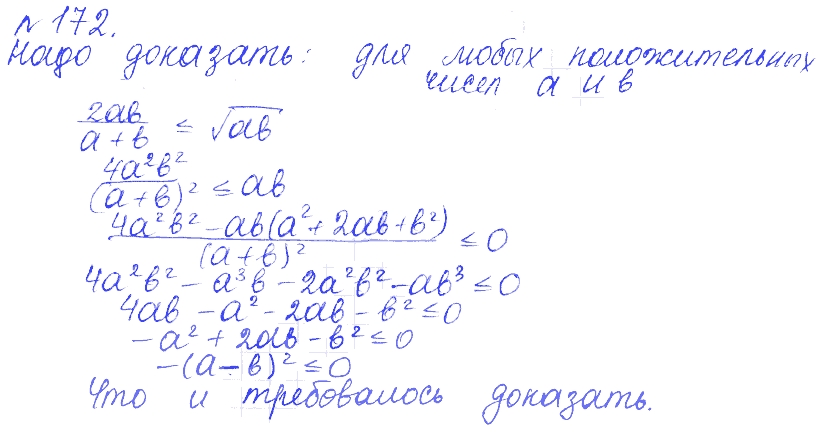 № 172.
Надо доказать: для любых положительных
чисел a и b
2ab/(a+b) ≤ √ab
4a²b²/(a+b)² ≤ ab
(4a²b² - ab(a² + 2ab + b²))/(a+b)² ≤ 0
4a²b² - a³b - 2a²b² - ab³ ≤ 0
4ab - a² - 2ab - b² ≤ 0
-a² + 2ab - b² ≤ 0
-(a - b)² ≤ 0
Что и требовалось доказать.